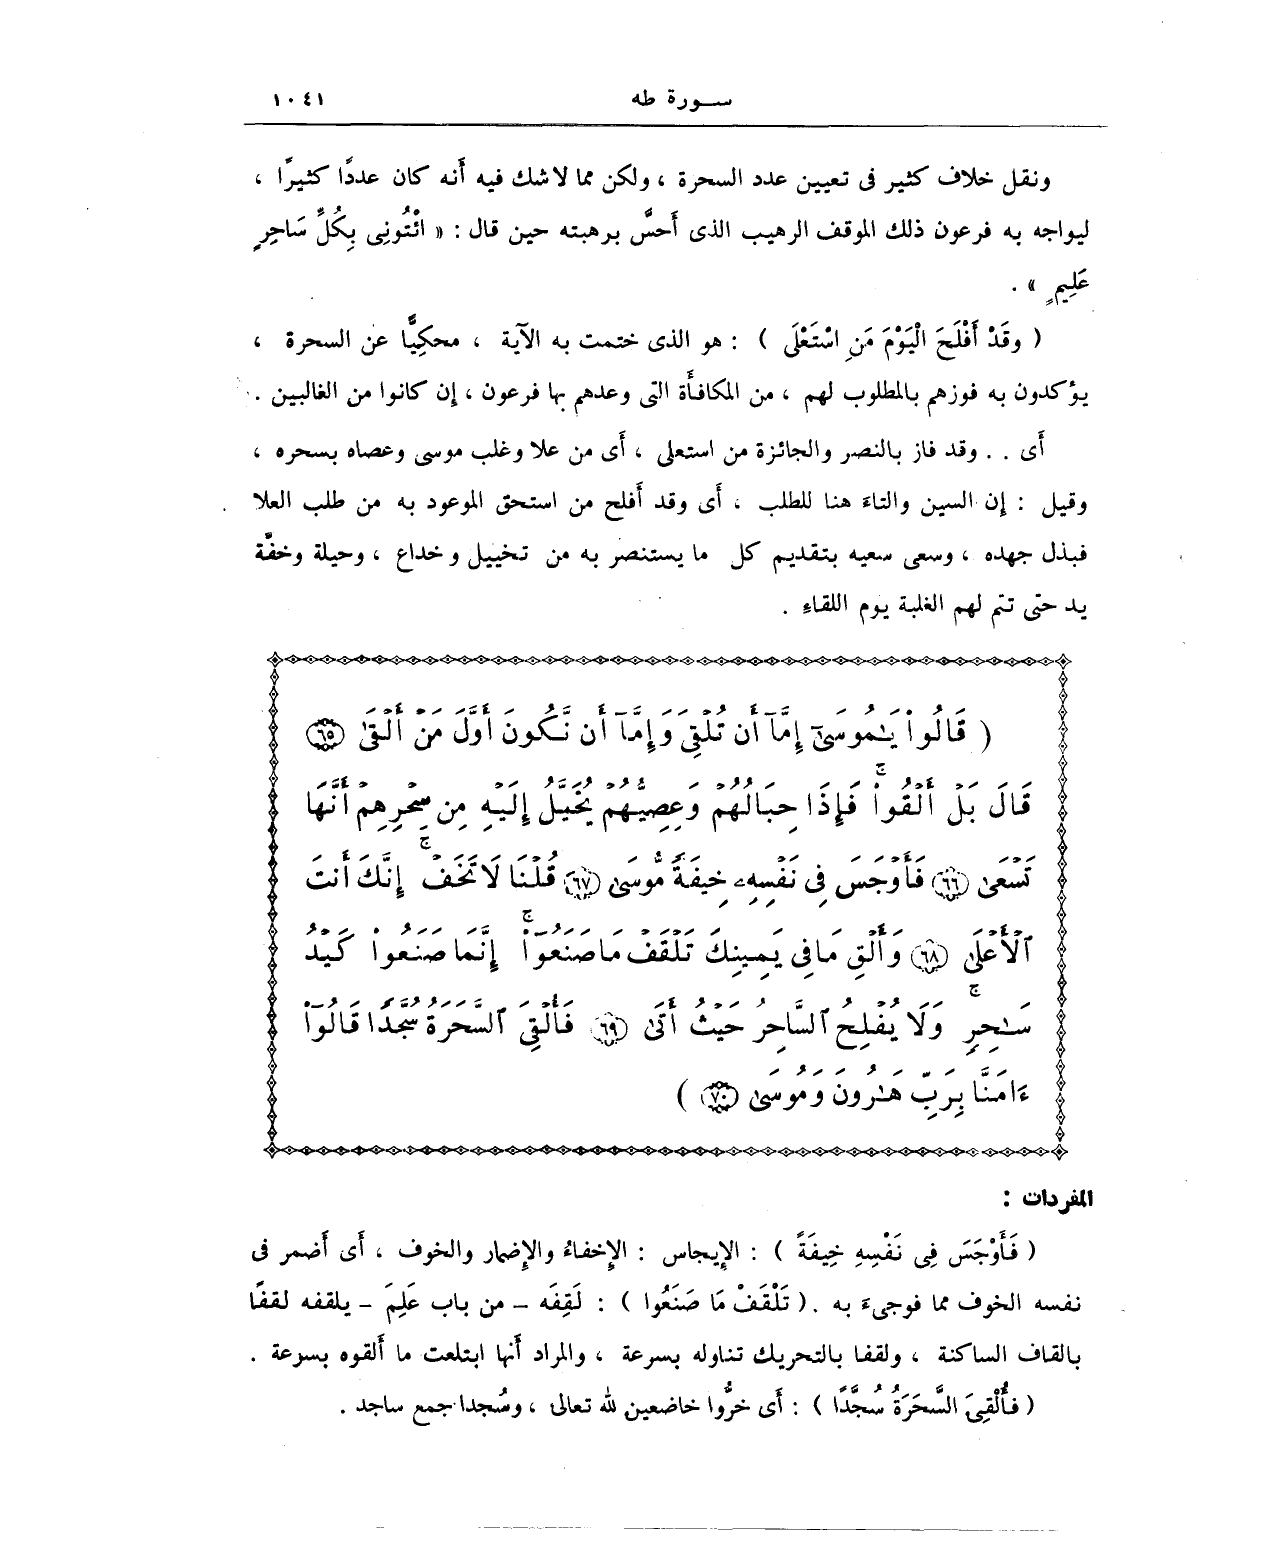 سورة طه ١٠٤١
ونقل خلاف كثير فى تعيين عدد السحرة ، ولكن مما لاشك فيه أَنه كان عددًا كثيرًا ،
ليواجه به فرعون ذلك الموقف الرهيب الذى أَحسَّ برهبته حين قال : « ائْتُونِى بِكُلِّ سَاحِرٍ
عَلِيمٍ » .
( وقَدْ أَفْلَحَ الْيَوْمَ مَنِ اسْتَعْلَى ) : هو الذى ختمت به الآية ، محكِيًّا عن السحرة ،
يؤكدون به فوزهم بالمطلوب لهم ، من المكافأَة التى وعدهم بها فرعون ، إن كانوا من الغالبين .
أَى . . وقد فاز بالنصر والجائزة من استعلى ، أَى من علا وغلب موسى وعصاه بسحره ،
وقيل : إن السين والتاءَ هنا للطلب ، أَى وقد أَفلح من استحق الموعود به من طلب العلا
فبذل جهده ، وسعى سعيه بتقديم كل ما يستنصر به من تخييل وخداع ، وحيلة وخفَّة
يد حتى تتم لهم الغلبة يوم اللقاءِ .
( قَالُوا۟ يَـٰمُوسَىٰٓ إِمَّآ أَن تُلْقِىَ وَإِمَّآ أَن نَّكُونَ أَوَّلَ مَنْ أَلْقَىٰ ٦٥
قَالَ بَلْ أَلْقُوا۟ ۖ فَإِذَا حِبَالُهُمْ وَعِصِيُّهُمْ يُخَيَّلُ إِلَيْهِ مِن سِحْرِهِمْ أَنَّهَا
تَسْعَىٰ ٦٦ فَأَوْجَسَ فِى نَفْسِهِۦ خِيفَةً مُّوسَىٰ ٦٧ قُلْنَا لَا تَخَفْ ۚ إِنَّكَ أَنتَ
ٱلْأَعْلَىٰ ٦٨ وَأَلْقِ مَا فِى يَمِينِكَ تَلْقَفْ مَا صَنَعُوٓا۟ ۚ إِنَّمَا صَنَعُوا۟ كَيْدُ
سَـٰحِرٍ ۚ وَلَا يُفْلِحُ ٱلسَّاحِرُ حَيْثُ أَتَىٰ ٦٩ فَأُلْقِىَ ٱلسَّحَرَةُ سُجَّدًا قَالُوٓا۟
ءَامَنَّا بِرَبِّ هَـٰرُونَ وَمُوسَىٰ ٧٠ )
المفردات :
( فَأَوْجَسَ فِى نَفْسِهِ خِيفَةً ) : الإِيجاس : الإِخفاءُ والإِضمار والخوف ، أَى أَضمر فى
نفسه الخوف مما فوجىءَ به . ( تَلْقَفْ مَا صَنَعُوا ) : لَقِفَه – من باب عَلِمَ – يلقفه لقفًا
بالقاف الساكنة ، ولقفا بالتحريك تناوله بسرعة ، والمراد أَنها ابتلعت ما أَلقوه بسرعة .
( فأُلْقِىَ السَّحَرَةُ سُجَّدًا ) : أَى خرُّوا خاضعين لله تعالى ، وسُجدا جمع ساجد .